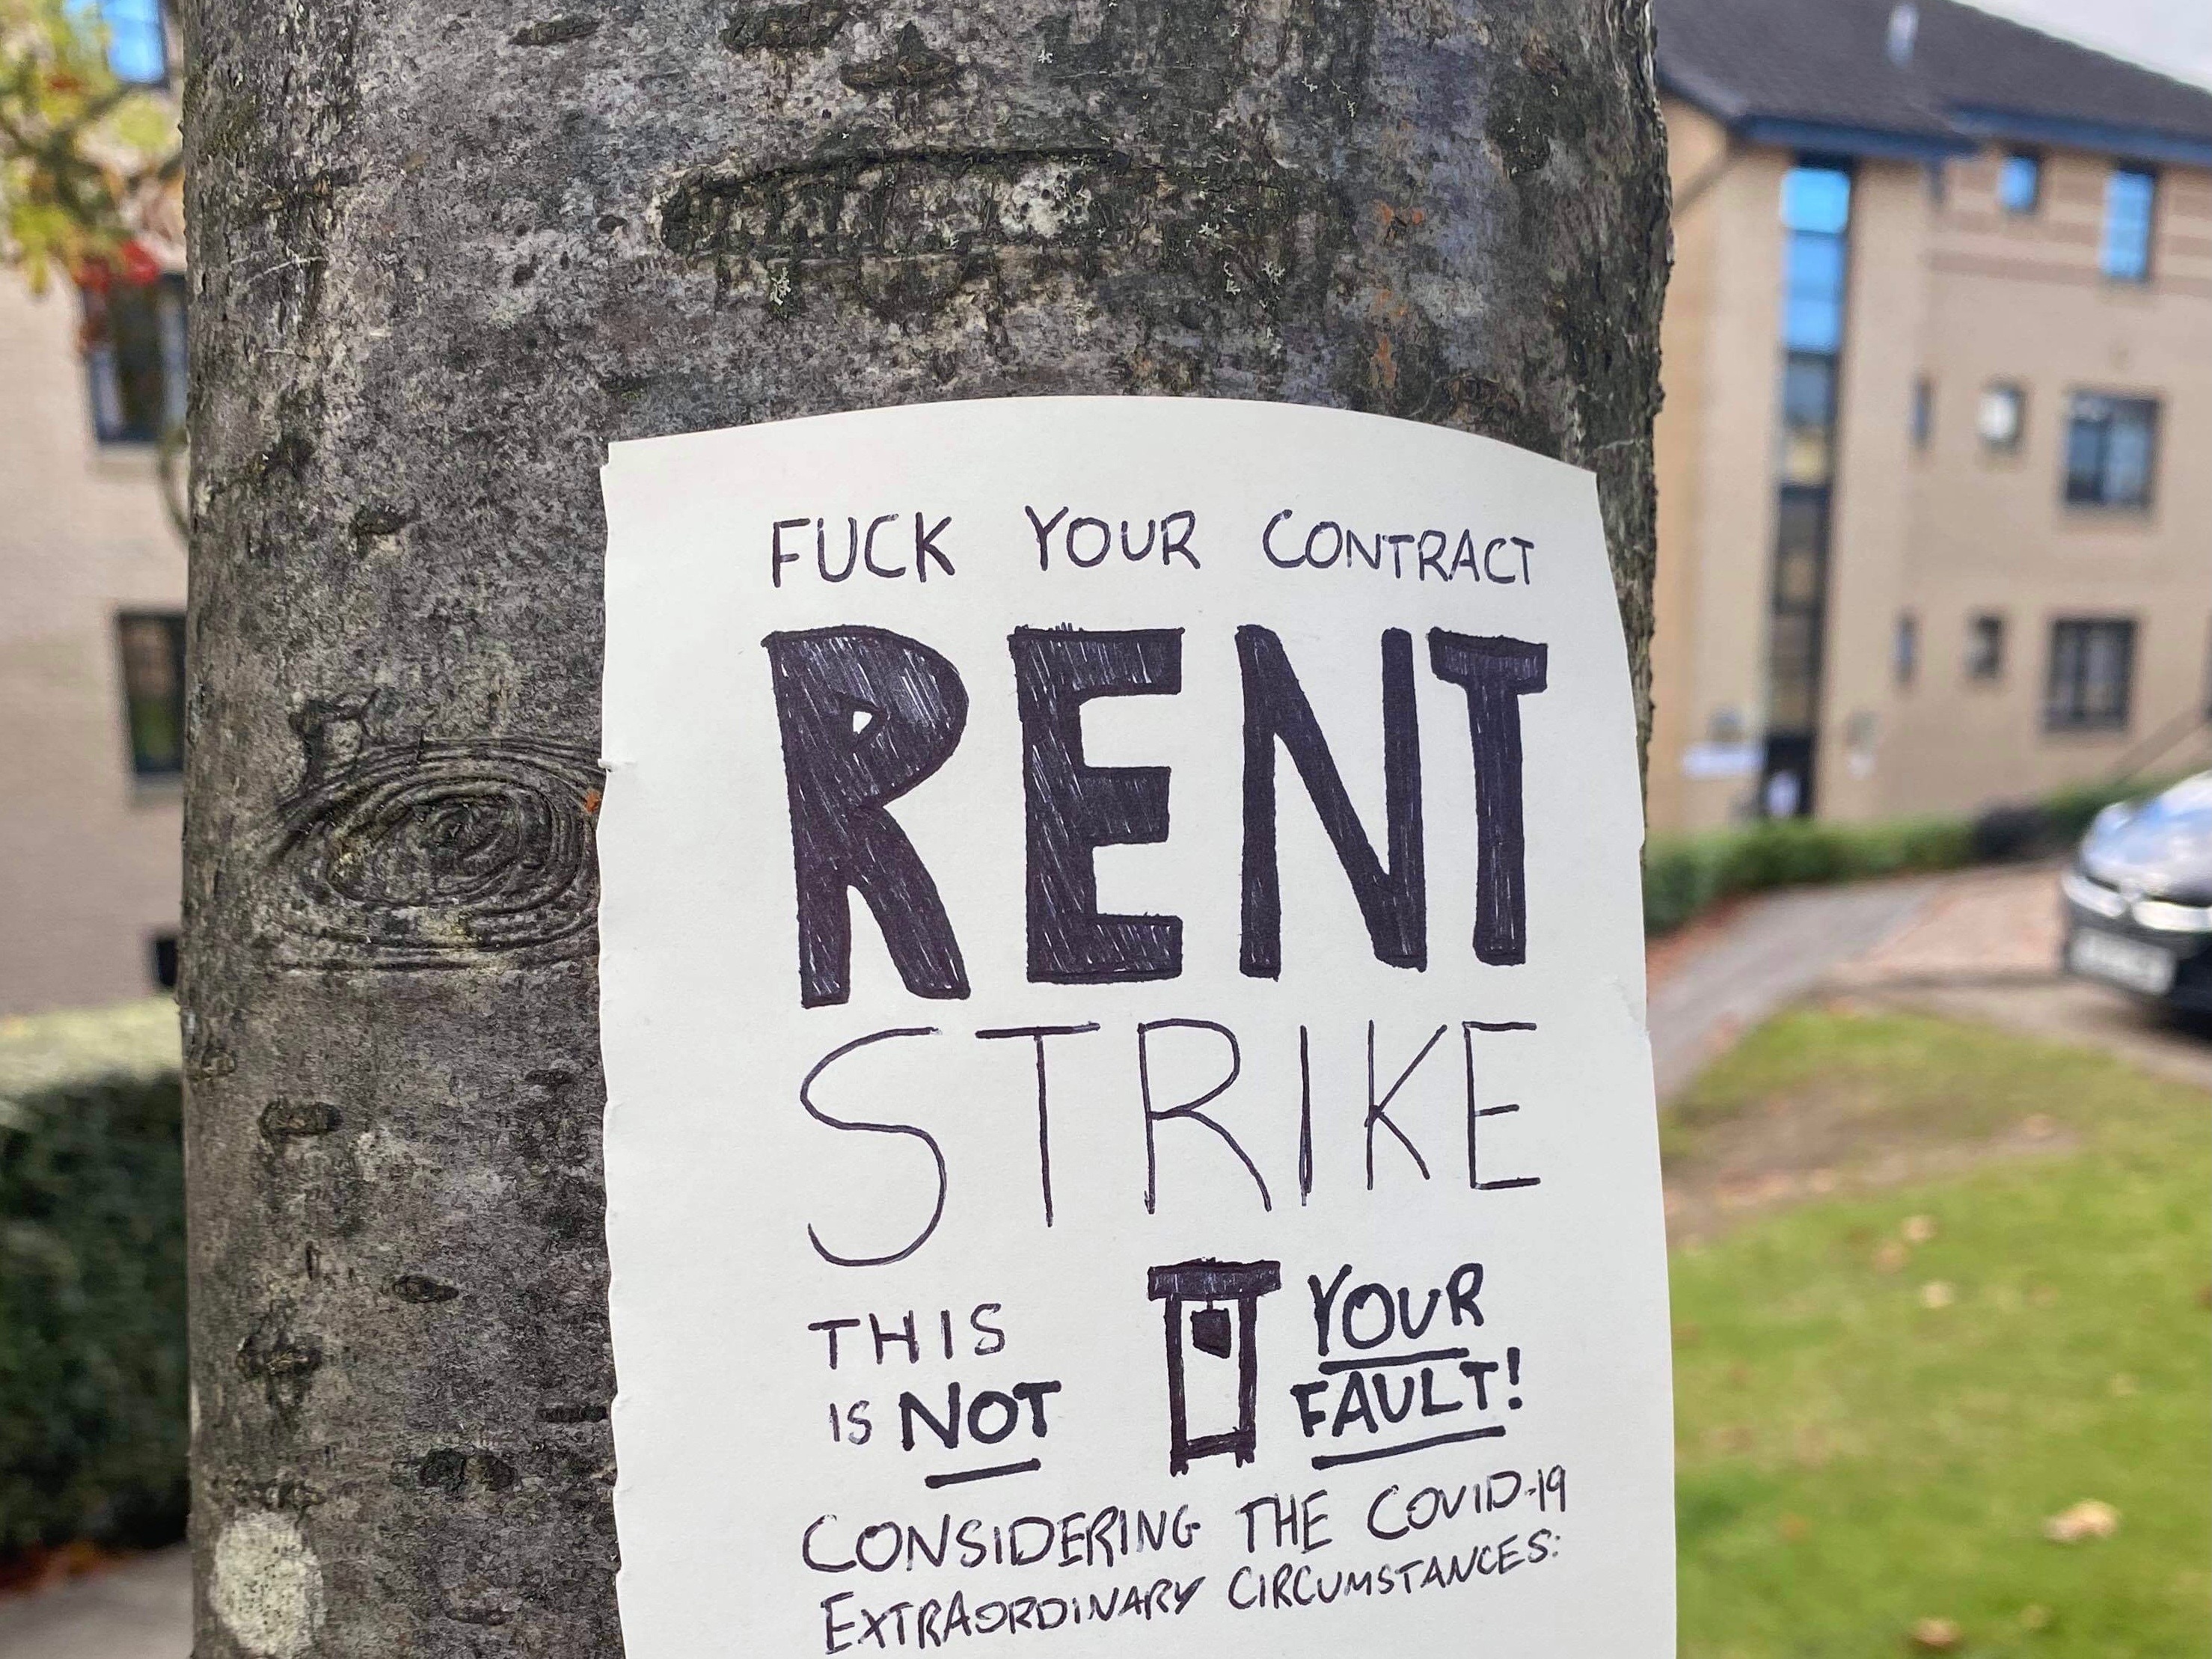 FUCK YOUR CONTRACT
RENT
STRIKE
THIS
IS NOT
YOUR
FAULT!
CONSIDERING THE COVID-19
EXTRAORDINARY CIRCUMSTANCES: